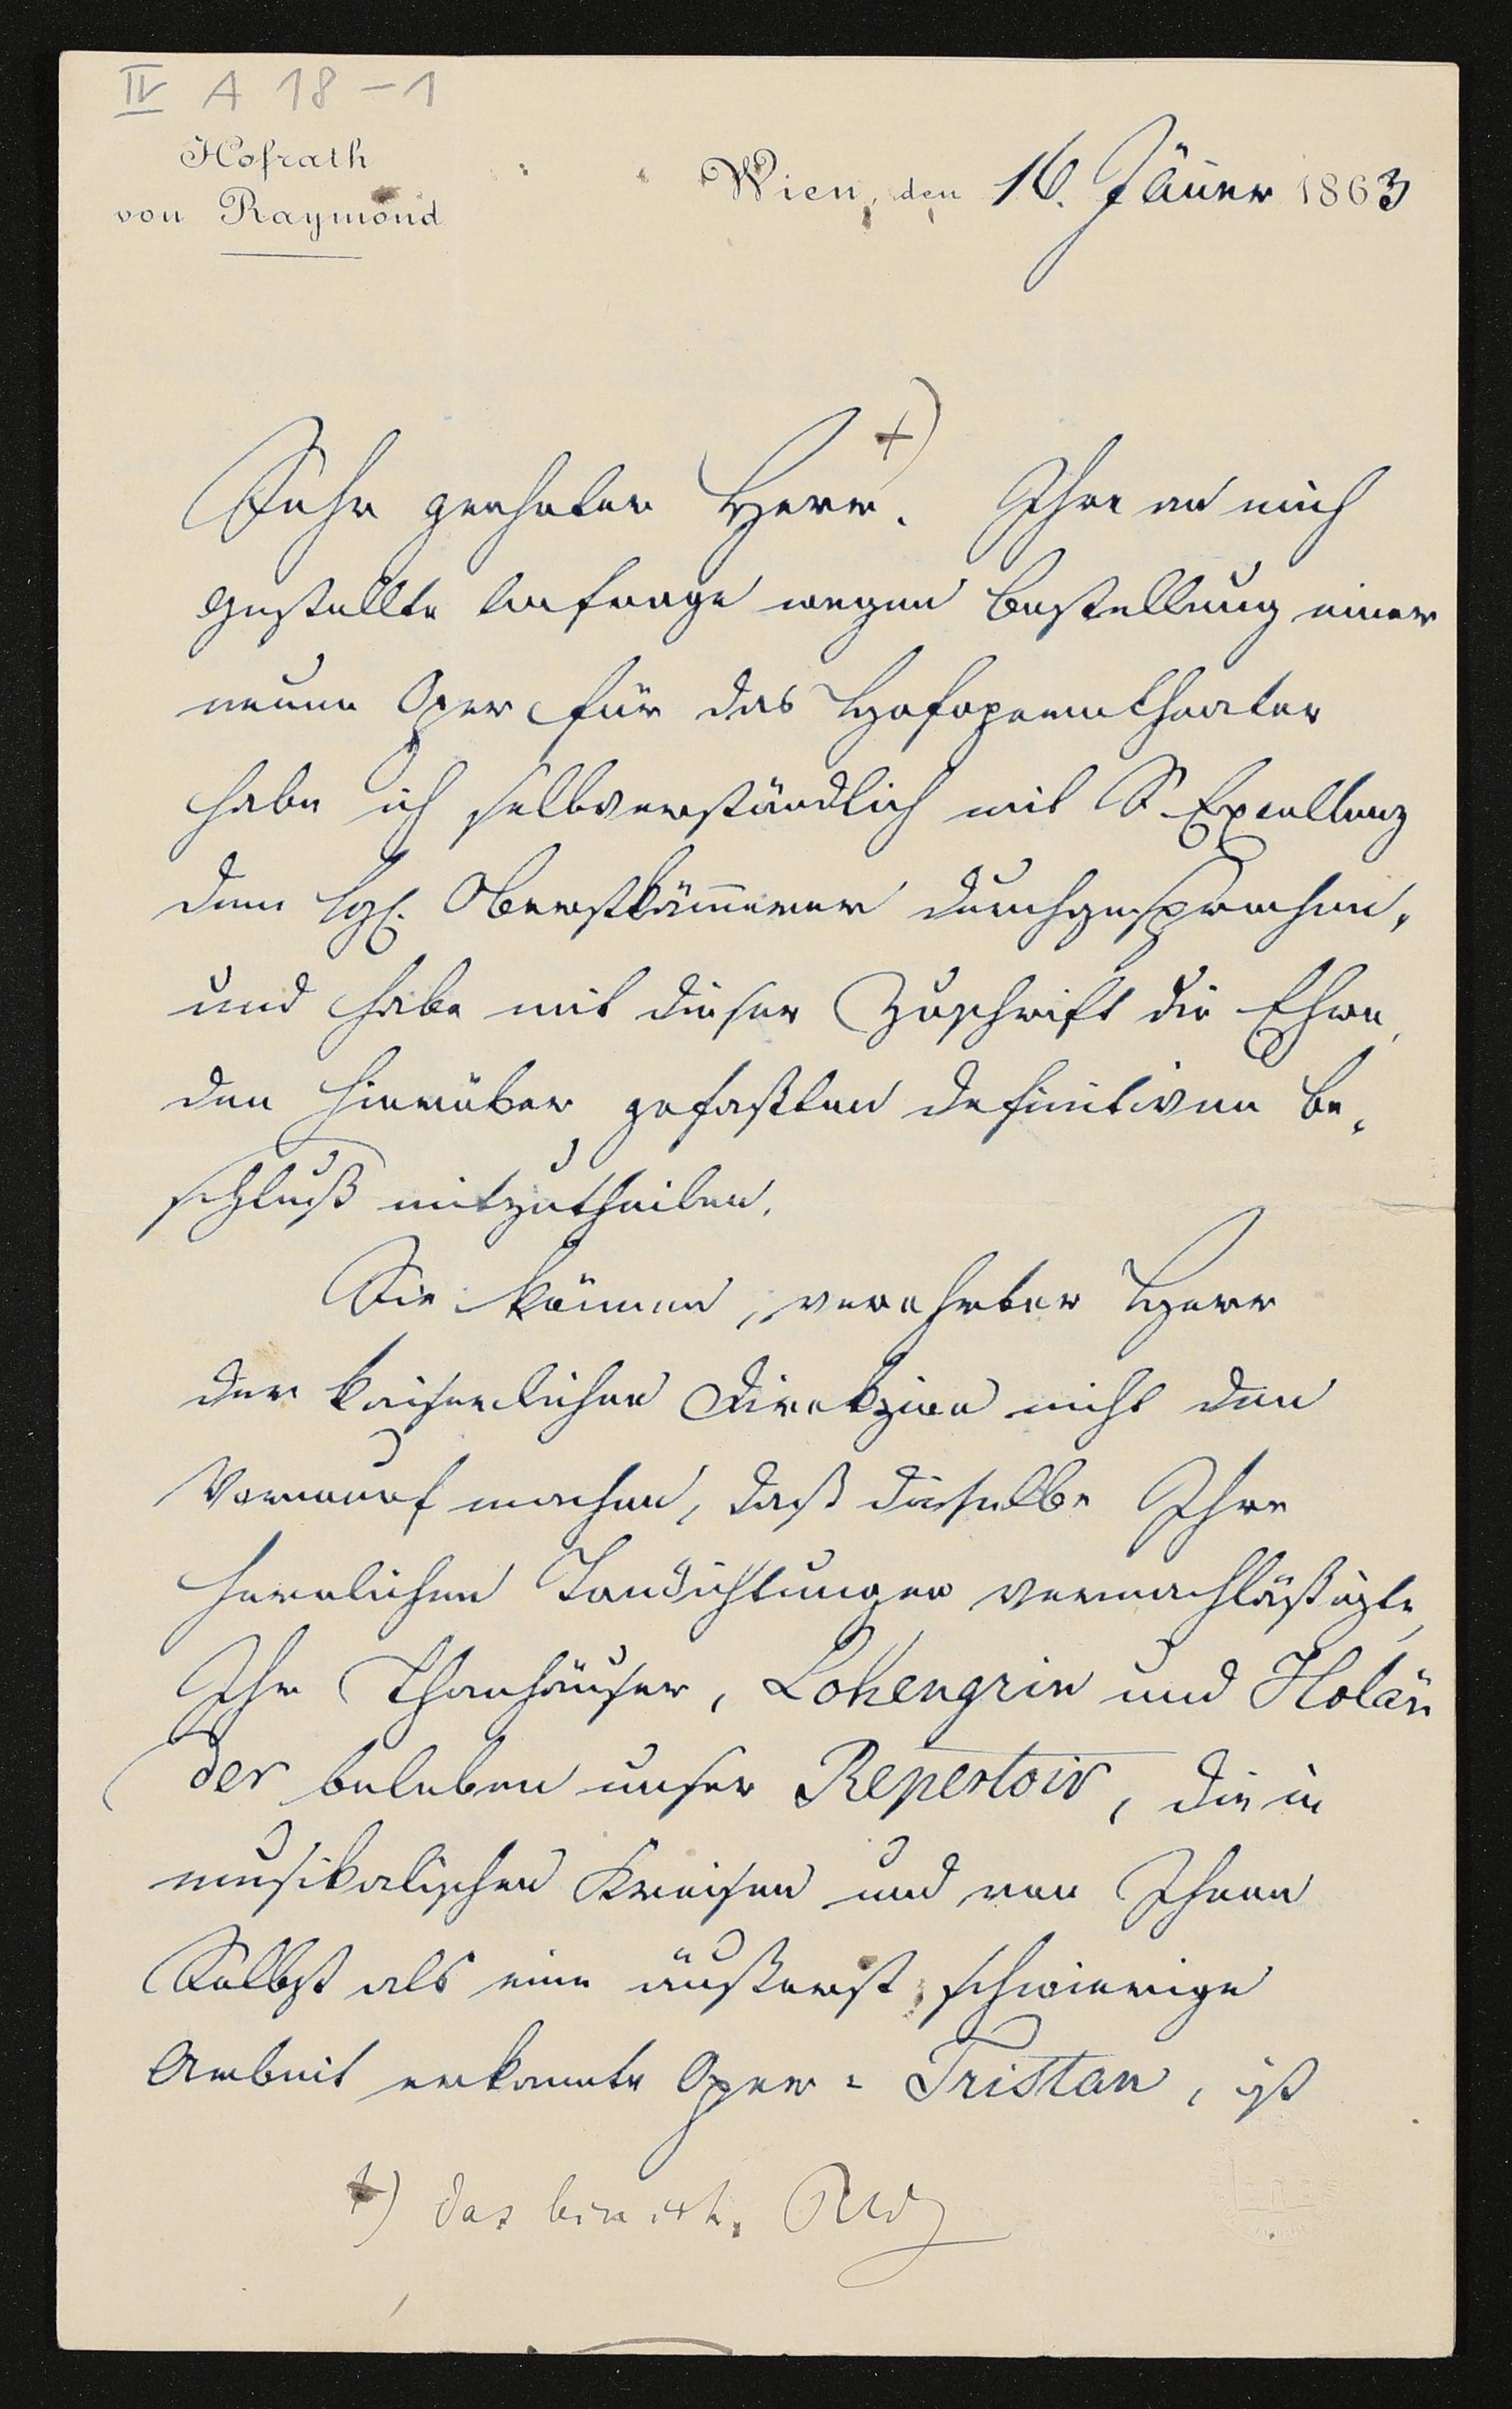 IV A 18-1
Hofrath
von Raymond
Wien, den 16. Jäner 1863
+)
Sehr geehrter Herr. Ihre an mich
gestellte Anfrage wegen Bestellung einer
neuen Oper für das Hofoperntheater
habe ich selbverständlich mit Sr Excellenz
dem H. Oberstkämmerer durchgesprochen,
und habe mit dieser Zuschrift die Ehre,
den hierüber gefaßten definitiven Be-
schluß mitzutheilen.
Sie können, verehrter Herr
der kaiserlichen Direkzion nicht den
Vorwurf machen, daß dieselbe Ihre
herrlichen Tondichtungen vernachläßigte,
Ihr Thanhäuser, Lohengrin und Holän
der beleben unser Repertoir, die in
musikalischen Kreisen und von Ihnen
Selbst als eine äußerst schwierige
Arbeit erkannte Oper = Tristan, ist
+) das bin ich. RW